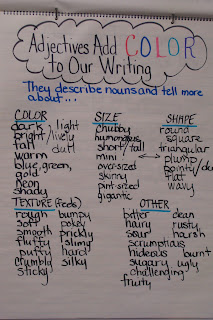 Adjectives Add COLOR
to Our Writing
They describe nouns and tell more
about...
COLOR
dark light
bright/lively
tall dull
warm
blue, green,
gold
neon
shady
SIZE
chubby
humongous
short/tall
mini
over-sized
skinny
pint-sized
gigantic
SHAPE
round
square
triangular
plump
pointy/dull
flat
wavy
TEXTURE (feels)
rough bumpy
soft pokey
smooth prickly
fluffy slimy
puffy hard
crumbly silky
sticky
OTHER
bitter clean
hairy rusty
sour harsh
scrumptious
hideous burnt
sugary ugly
challenging
fruity